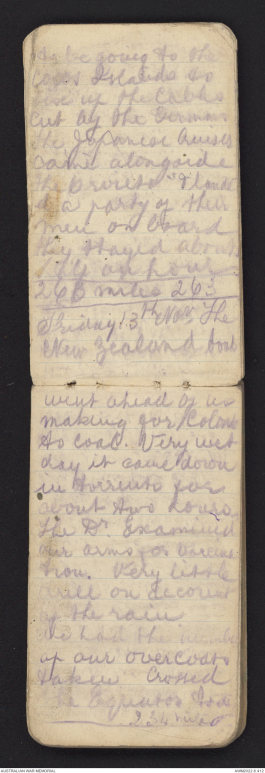 to be going to the
Cocos Islands to
fix up the Cables
cut by the Germans
the Japanese Cruiser
came alongside
the & landed
a party of their
men on board
they stayed about
½ an hour
266 miles 263
Friday 13th Nov. The
New Zealand boats
went ahead of us
making for Colombo
to coal. Very wet
day it came down
in torrents for
about two hours
The Dr. Examined
our arms for vaccina
tion. Very little
drill on account
of the rain
We had the numbers
of our overcoats
taken Crossed
the Equator
234 miles
AUSTRALIAN WAR MEMORIAL